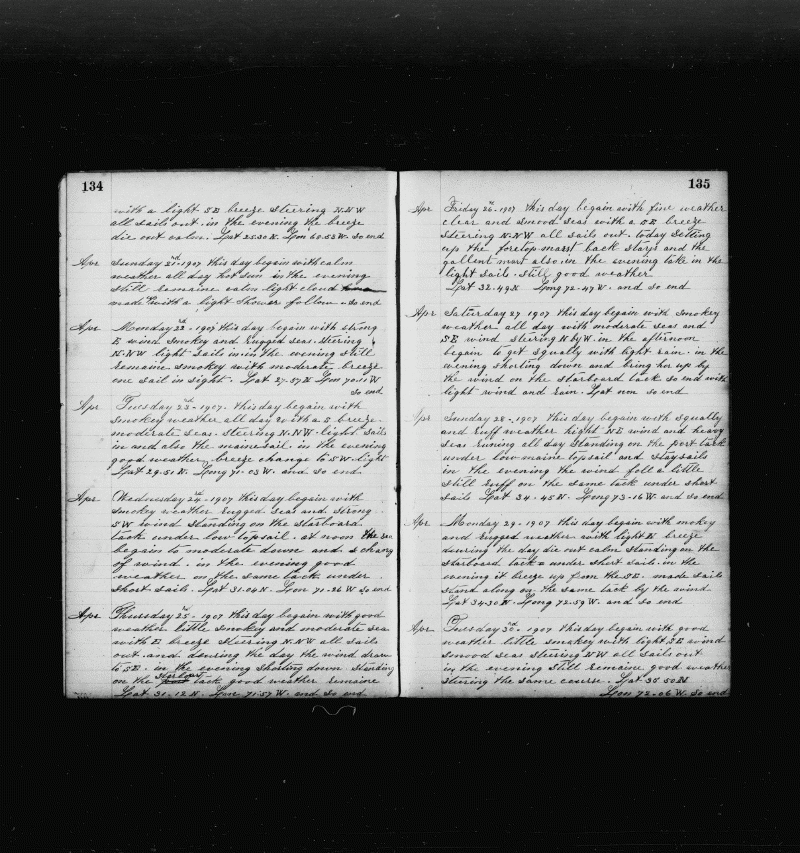 134
with a light SE breeze steering N.NW
all sails out. in the evening the breeze
die out calm. Lat 25.30 N. Lon 60.53 W. So end
Apr Sunday 21st. 1907 this day begain with calm
weather all day hot sun in the evening
still remaine calm light cloud
made with a light shower follow - so end
Apr Monday 22d. 1907 this day begain with strong
E wind smokey and rugged seas. steering
N.NW light sails in. in the evening still
remaine smokey with moderate breeze
one sail in sight. Lat 27.57 N Lon 70.11 W
so end
Apr Tuesday 23d. 1907. this day begain with
smokey weather all day with a E breeze
moderate seas. steering N.NW. light sails
in and also the mainsail. in the evening
good weather, breeze change to SW light
Lat 29.51 N. Long 71.03 W. and so end.
Apr Wednesday 24. 1907 this day begain with
smokey weather rugged seas and strong
SW wind standing on the starboard
tack under low topsail. at noon the sea
begain to moderate down and a chang
of wind. in the evening good
weather on the same tack under
short sails. Lat 31.09 N. Lon 71.26 W so end
Apr Thursday 25. 1907 this day begain with good
weather little smokey and moderate sea
with E breeze steering N.NW all sails
out and dauring the day the wind draw
to SE. in the evening shorting down. standing
on the starboard tack good weather remaine
Lat 31.12 N. Lon 71.57 W. and so end
135
Apr Friday 26. 1907 this day begain with fine weather
clear and smood seas with a SE breeze
steering N.NW all sails out. today setting
up the foretop mast back stays and the
gallent mast also. in the evening take in the
light sails. still good weather
Lat 32.49 N Long 72.47 W. and so end
Apr Saturday 27 1907 this day begain with smokey
weather all day with moderate seas and
SE wind steering N by W. in the afternoon
begain to get squally with light rain. in the
evening shorting down and bring her up by
the wind on the starboard tack so end with
light wind and rain. Lat so end
Apr Sunday 28. 1907 this day begain with squally
and ruff weather hight NE wind and heavy
seas runing all day standing on the port tack
under low maine topsail and staysails
in the evening the wind fell a little
still ruff on the same tack under short
sails Lat 34.45 N. Long 73.16 W and so end
Apr Monday 29. 1907 this day begain with mokey
and rugged weather with light E breeze
dauring the day die out calm standing on the
starboard tack under short sails. in the
evening it breeze up from the SE. made sails
stand along on the same tack by the wind
Lat 34.30 N. Long 72.59 W. and so end
Apr Tuesday 30. 1907 this day begain with good
weather little smokey with light SE wind
smood seas steering NW all sails out
in the evening still remaine good weather
steering the same course. Lat 35 50 N
Lon 72.06 W. so end